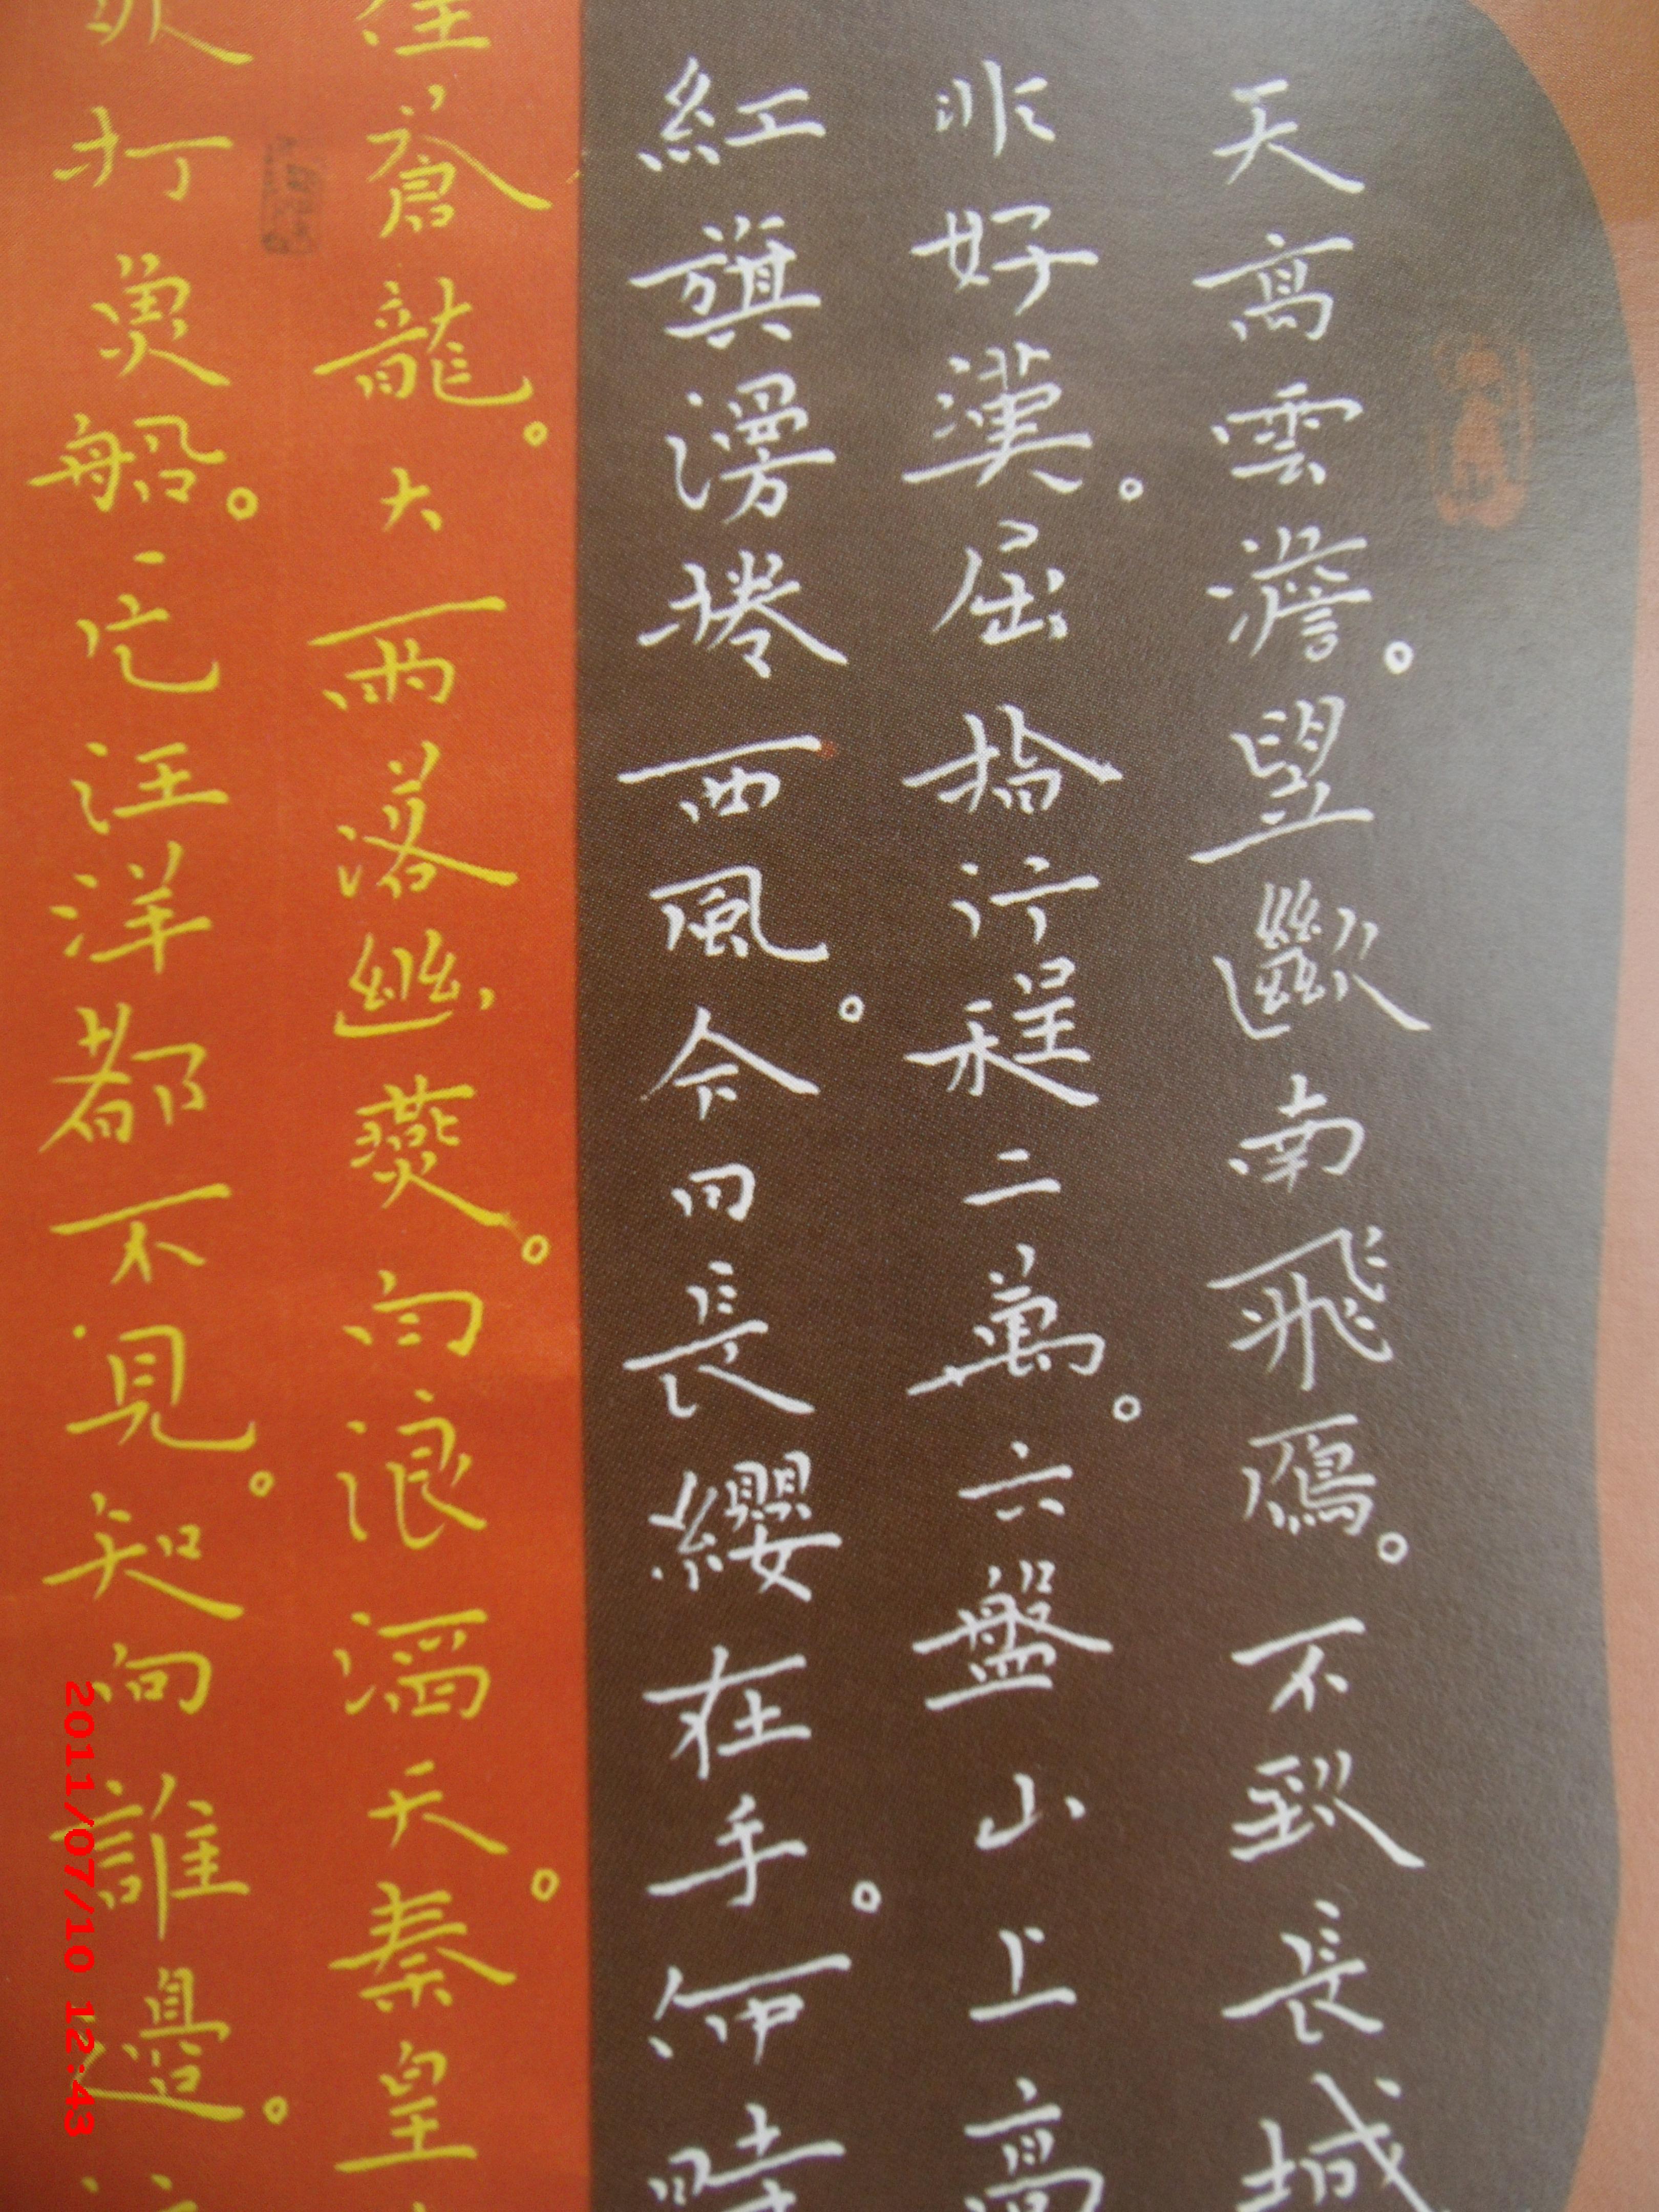 天高雲澹。望斷南飛鴈。不到長城
非好漢。屈指行程二萬。六盤山上高
紅旗漫捲西風。今日長纓在手。何時
住,蒼龍。大雨落幽燕。白浪滔天。秦皇
打魚船。一片汪洋都不見。知向誰邊。
2011/07/10 12:43